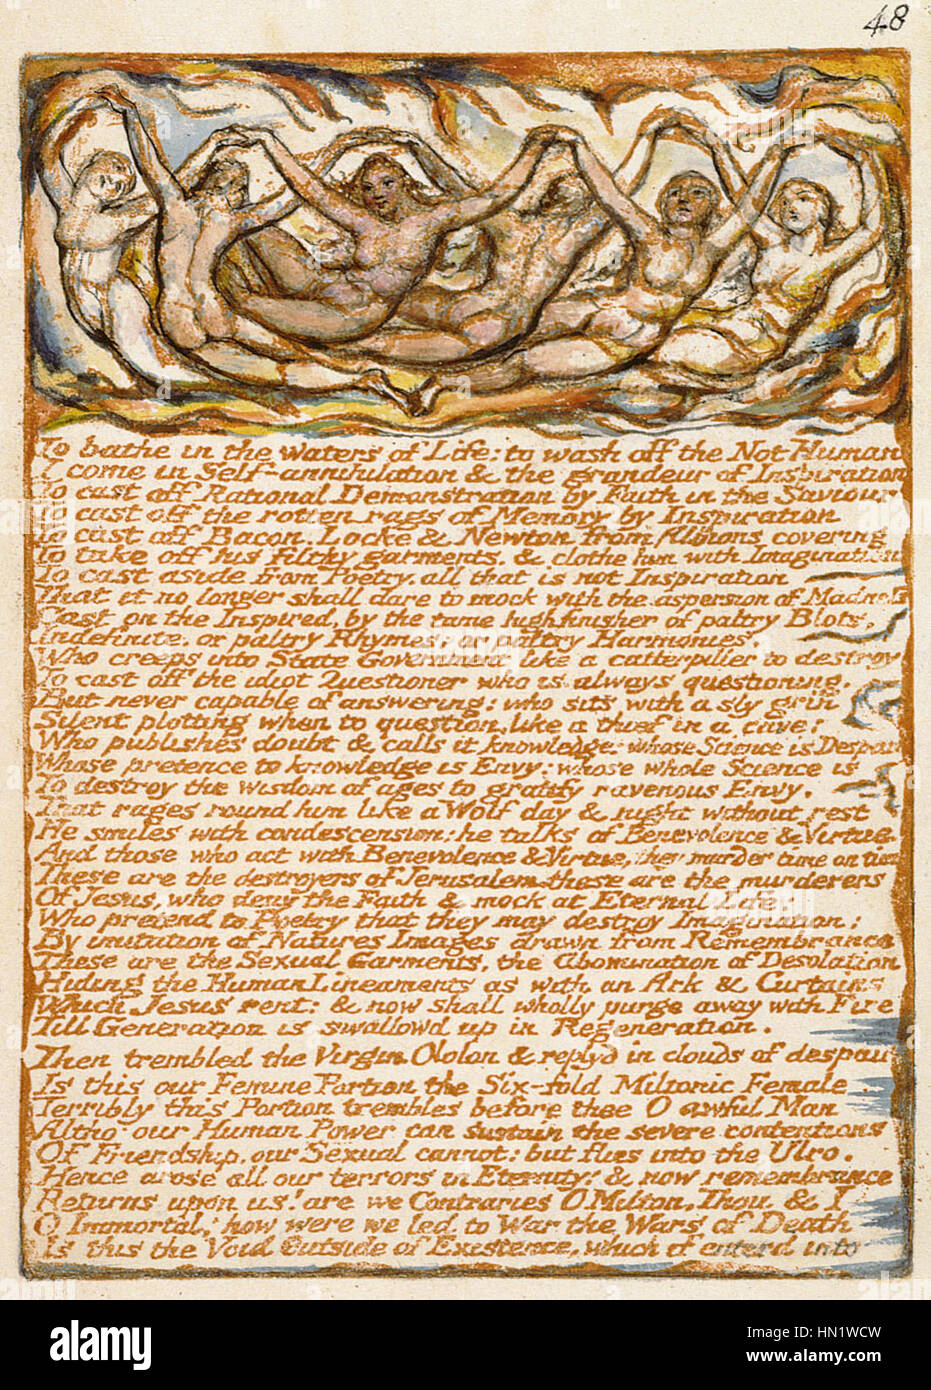 48
To bathe in the Waters of Life; to wash off the Not Human
I come in Self-annihilation & the grandeur of Inspiration
To cast off Rational Demonstration by Faith in the Saviour
To cast off the rotten rags of Memory by Inspiration
To cast off Bacon, Locke & Newton from Albions covering
To take off his filthy garments, & clothe him with Imagination
To cast aside from Poetry, all that is not Inspiration
That it no longer shall dare to mock with the aspersion of Madness
Cast on the Inspired, by the tame high finisher of paltry Blots,
Indefinite, or paltry Rhymes; or paltry Harmonies.
Who creeps into State Government like a catterpiller to destroy
To cast off the idiot Questioner who is always questioning,
But never capable of answering; who sits with a sly grin
Silent plotting when to question, like a thief in a cave;
Who publishes doubt & calls it knowledge; whose Science is Despair
Whose pretence to knowledge is Envy; whose whole Science is
To destroy the wisdom of ages to gratify ravenous Envy.
That rages round him like a Wolf day & night without rest
He smiles with condescension; he talks of Benevolence & Virtue
And those who act with Benevolence & Virtue, they murder time on time
These are the destroyers of Jerusalem, these are the murderers
Of Jesus, who deny the Faith & mock at Eternal Life:
Who pretend to Poetry that they may destroy Imagination;
By imitation of Natures Images drawn from Remembrance
These are the Sexual Garments, the Abomination of Desolation
Hiding the Human Lineaments as with an Ark & Curtains
Which Jesus rent: & now shall wholly purge away with Fire
Till Generation is swallowd up in Regeneration.
Then trembled the Virgin Ololon & replyd in clouds of despair
Is this our Femine Portion the Six-fold Miltonic Female
Terribly this Portion trembles before thee O awful Man
Altho' our Human Power can sustain the severe contentions
Of Friendship, our Sexual cannot: but flies into the Ulro.
Hence arose all our terrors in Eternity! & now remembrance
Returns upon us! are we Contraries O Milton, Thou & I
O Immortal! how were we led to War the Wars of Death
Is this the Void Outside of Existence, which if enterd into
alamy
Image ID: HN1WCW
www.alamy.com